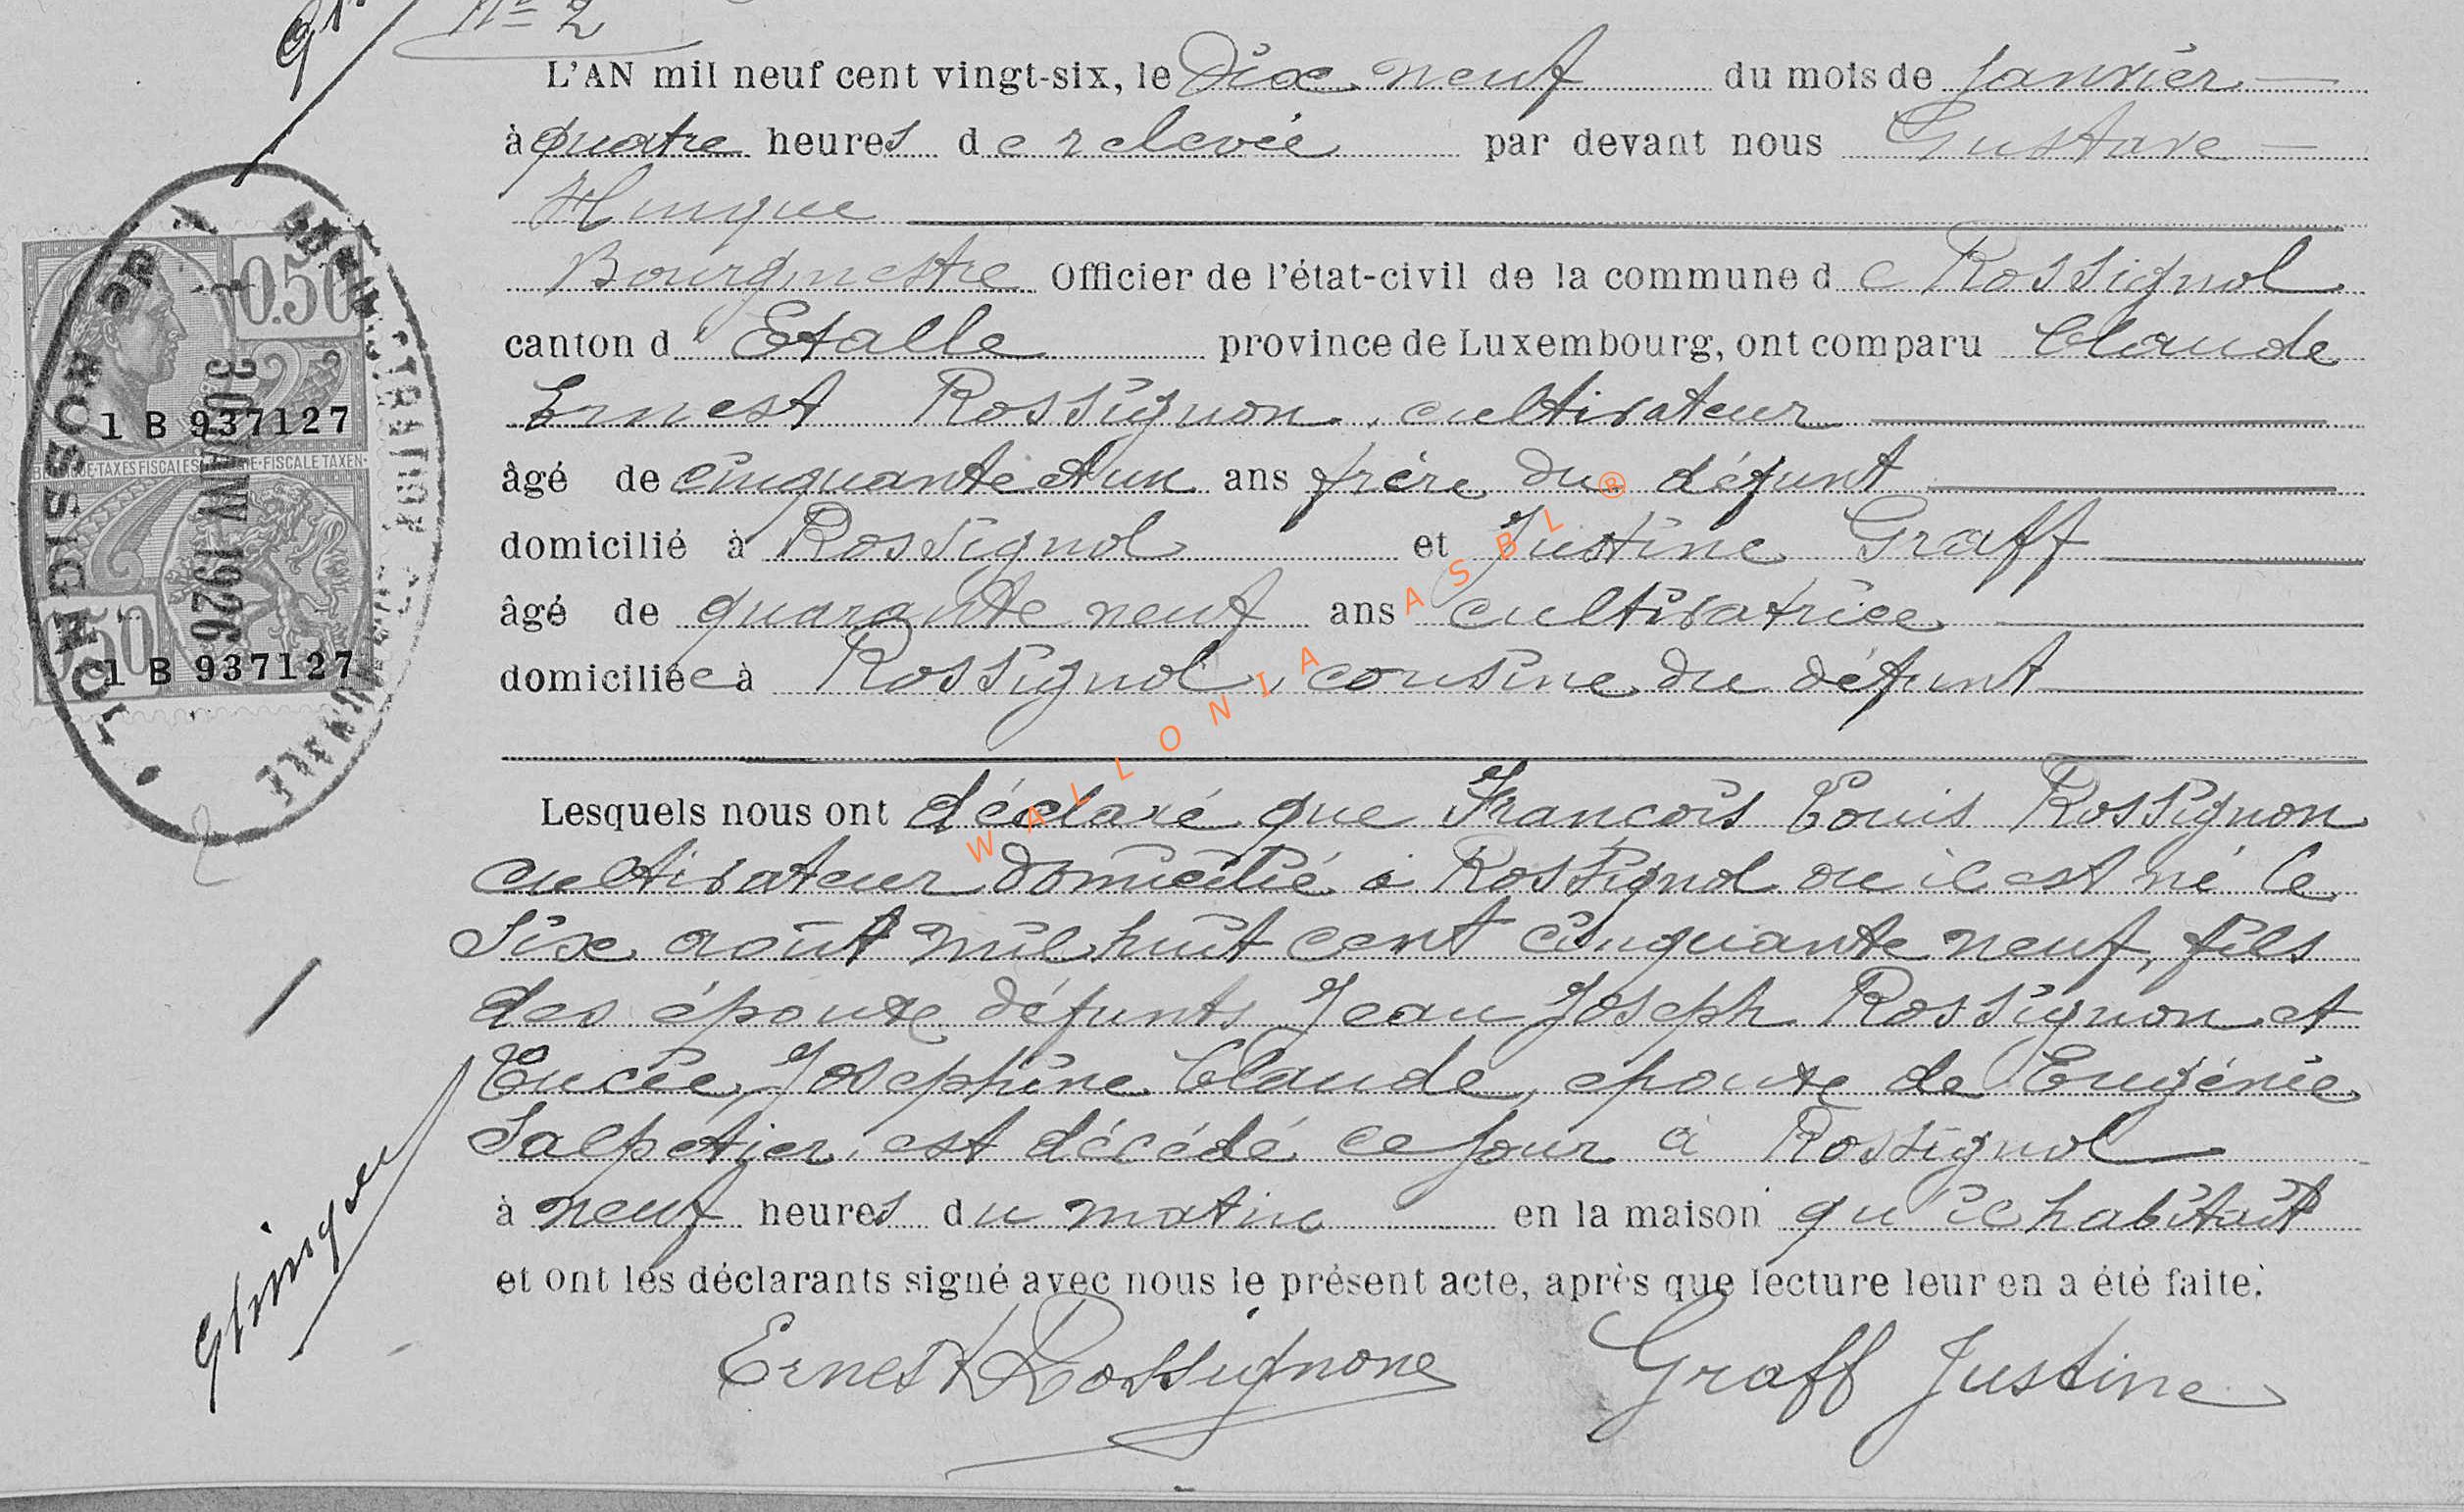 N° 2
L'AN mil neuf cent vingt-six, le Dix neuf du mois de Janvier
à quatre heures de relevée par devant nous Gustave
Hinque
Bourgmestre Officier de l'état-civil de la commune de Rossignol
canton d'Etalle province de Luxembourg, ont comparu Claude
Ernest Rossignon, cultivateur
âgé de cinquante et un ans frère du défunt
domicilié à Rossignol et Justine Graff
âgé de quarante neuf ans cultivatrice
domiciliée à Rossignol, cousine du défunt
Lesquels nous ont déclaré que François Louis Rossignon
cultivateur domicilié à Rossignol ou il est né le
six août mil huit cent cinquante neuf, fils
des époux défunts Jean Joseph Rossignon et
Lucie Josephine Claude, époux de Eugénie
Salpetier, est décédé ce jour à Rossignol
à neuf heures du matin en la maison qu'il habitait
et ont les déclarants signé avec nous le présent acte, après que lecture leur en a été faite.
Ernest Rossignon
Graff Justine
ADMINISTRATION COMMUNALE
ROSSIGNOL
0.50
30 JANV 1926
1 B 937127
TAXES FISCALES FISCALE TAXEN
0.50
1 B 937127
WALLONIA ASBL ®